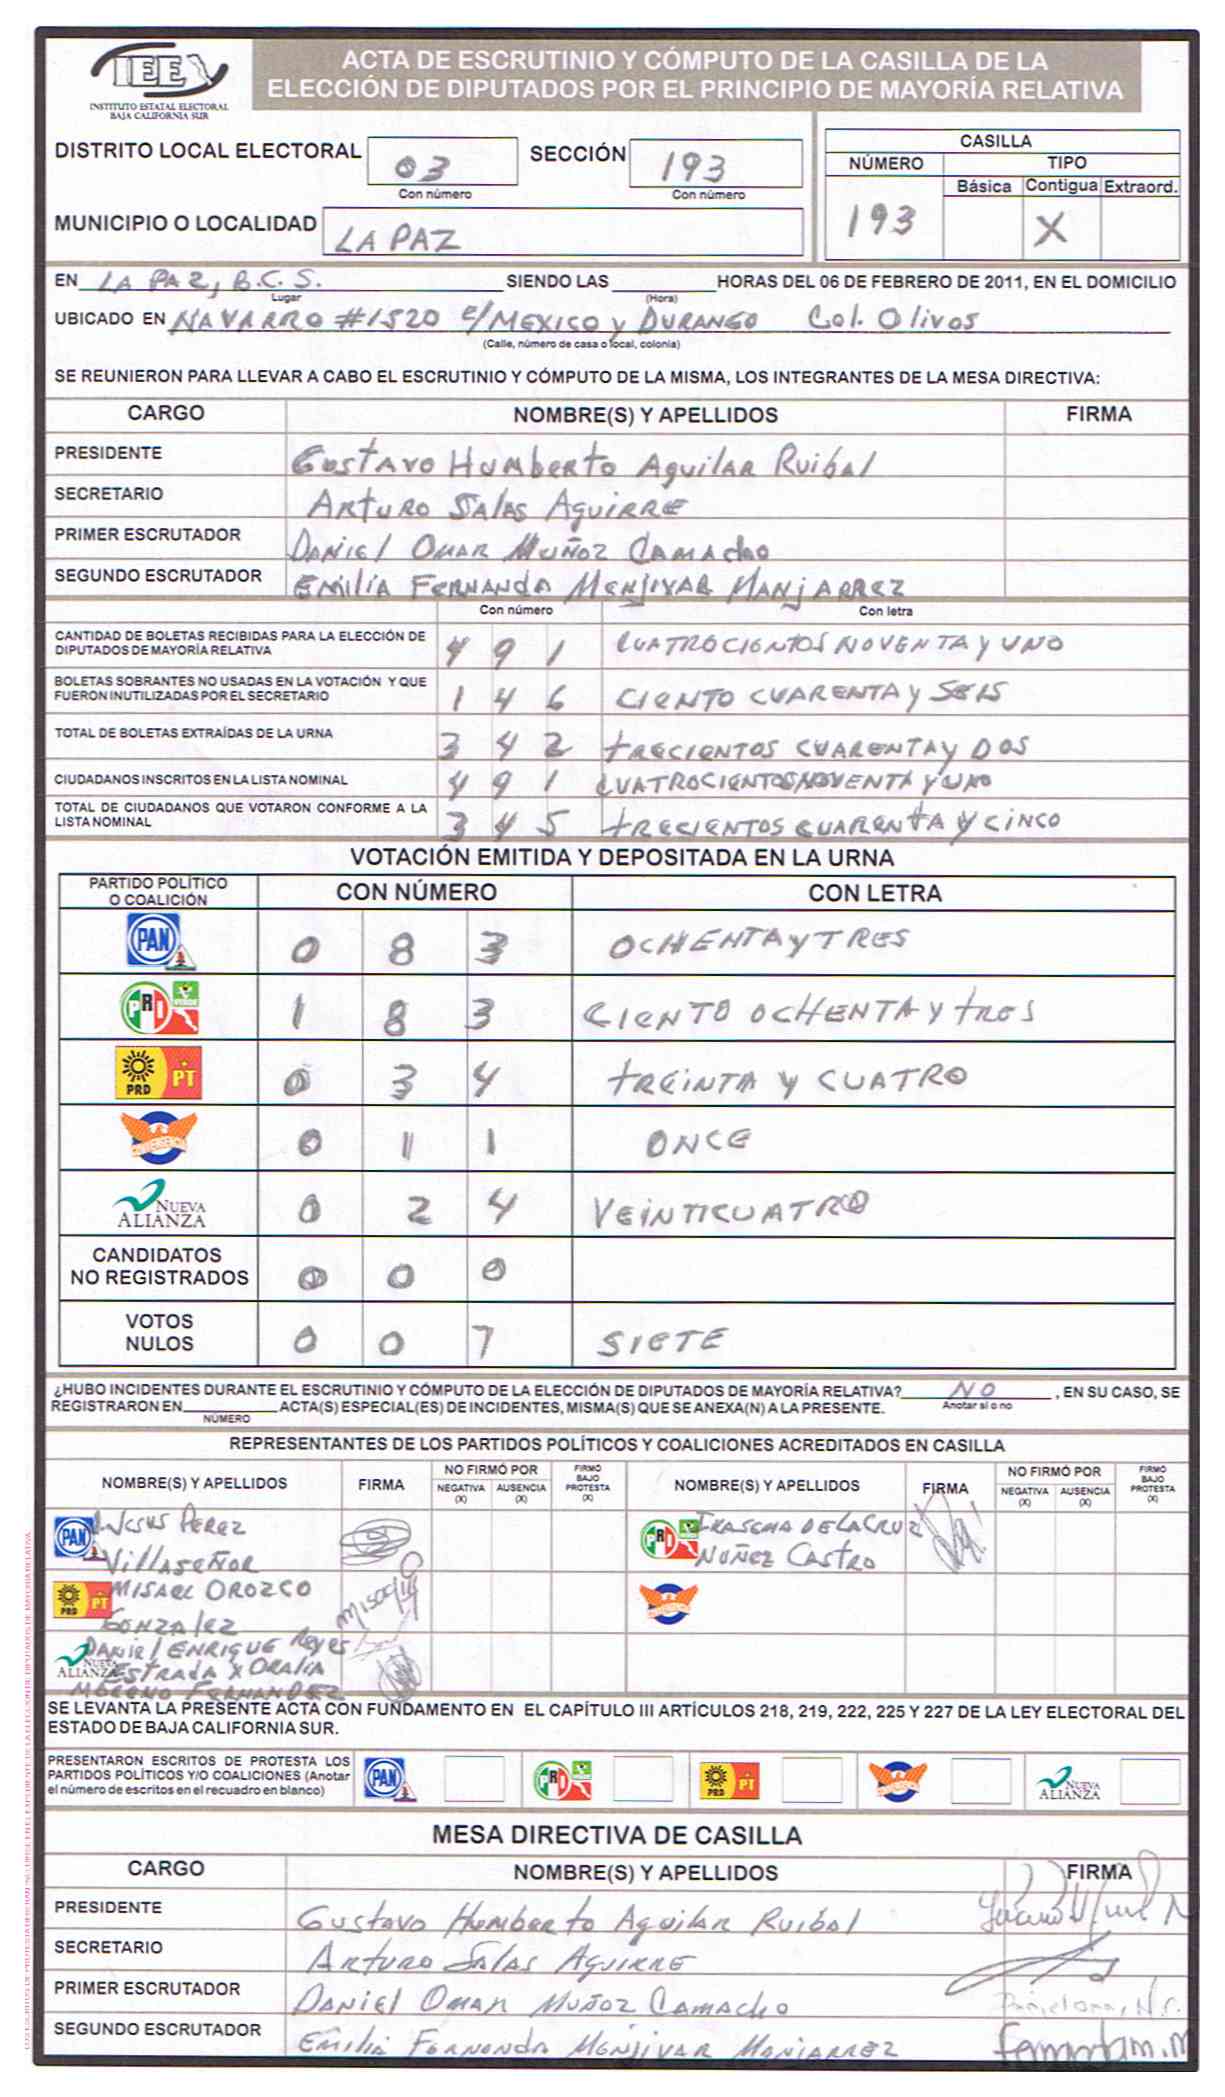 IEE
INSTITUTO ESTATAL ELECTORAL
BAJA CALIFORNIA SUR
ACTA DE ESCRUTINIO Y CÓMPUTO DE LA CASILLA DE LA
ELECCIÓN DE DIPUTADOS POR EL PRINCIPIO DE MAYORÍA RELATIVA
DISTRITO LOCAL ELECTORAL 03 SECCIÓN 193
Con número Con número
MUNICIPIO O LOCALIDAD LA PAZ
CASILLA
NÚMERO TIPO
Básica Contigua Extraord.
193 X
EN LA PAZ, B.C.S. SIENDO LAS HORAS DEL 06 DE FEBRERO DE 2011, EN EL DOMICILIO
Lugar (Hora)
UBICADO EN NAVARRO #1520 e/MEXICO y DURANGO Col. Olivos
(Calle, número de casa o local, colonia)
SE REUNIERON PARA LLEVAR A CABO EL ESCRUTINIO Y CÓMPUTO DE LA MISMA, LOS INTEGRANTES DE LA MESA DIRECTIVA:
CARGO NOMBRE(S) Y APELLIDOS FIRMA
PRESIDENTE Gustavo Humberto Aguilar Ruibal
SECRETARIO Arturo Salas Aguirre
PRIMER ESCRUTADOR Daniel Omar Muñoz Camacho
SEGUNDO ESCRUTADOR Emilia Fernanda Menjivar Manjarrez
Con número Con letra
CANTIDAD DE BOLETAS RECIBIDAS PARA LA ELECCIÓN DE
DIPUTADOS DE MAYORÍA RELATIVA 4 9 1 CUATROCIENTOS NOVENTA y UNO
BOLETAS SOBRANTES NO USADAS EN LA VOTACIÓN Y QUE
FUERON INUTILIZADAS POR EL SECRETARIO 1 4 6 CIENTO CUARENTA y SEIS
TOTAL DE BOLETAS EXTRAÍDAS DE LA URNA 3 4 2 TRECIENTOS CUARENTA y DOS
CIUDADANOS INSCRITOS EN LA LISTA NOMINAL 4 9 1 CUATROCIENTOS NOVENTA y UNO
TOTAL DE CIUDADANOS QUE VOTARON CONFORME A LA
LISTA NOMINAL 3 4 5 TRECIENTOS CUARENTA y CINCO
VOTACIÓN EMITIDA Y DEPOSITADA EN LA URNA
PARTIDO POLÍTICO
O COALICIÓN CON NÚMERO CON LETRA
PAN 0 8 3 OCHENTA y TRES
PRI VERDE 1 8 3 CIENTO OCHENTA y TRES
PRD PT 0 3 4 TREINTA y CUATRO
CONVERGENCIA 0 1 1 ONCE
NUEVA ALIANZA 0 2 4 VEINTICUATRO
CANDIDATOS
NO REGISTRADOS 0 0 0
VOTOS
NULOS 0 0 7 SIETE
¿HUBO INCIDENTES DURANTE EL ESCRUTINIO Y CÓMPUTO DE LA ELECCIÓN DE DIPUTADOS DE MAYORÍA RELATIVA? NO , EN SU CASO, SE
REGISTRARON EN ACTA(S) ESPECIAL(ES) DE INCIDENTES, MISMA(S) QUE SE ANEXA(N) A LA PRESENTE. Anotar sí o no
NÚMERO
REPRESENTANTES DE LOS PARTIDOS POLÍTICOS Y COALICIONES ACREDITADOS EN CASILLA
NOMBRE(S) Y APELLIDOS FIRMA NO FIRMÓ POR NEGATIVA (X) AUSENCIA (X) FIRMÓ BAJO PROTESTA (X) NOMBRE(S) Y APELLIDOS FIRMA NO FIRMÓ POR NEGATIVA (X) AUSENCIA (X) FIRMÓ BAJO PROTESTA (X)
PAN Jesus Perez
Villaseñor
PRI VERDE DE LA CRUZ
NUÑEZ CASTRO
PRD PT MISAEL OROZCO
GONZALEZ
CONVERGENCIA
NUEVA ALIANZA Daniel ENRIQUE Reyes
ESTRADA X ORALIA
MORENO FERNANDEZ
SE LEVANTA LA PRESENTE ACTA CON FUNDAMENTO EN EL CAPÍTULO III ARTÍCULOS 218, 219, 222, 225 Y 227 DE LA LEY ELECTORAL DEL
ESTADO DE BAJA CALIFORNIA SUR.
PRESENTARON ESCRITOS DE PROTESTA LOS
PARTIDOS POLÍTICOS Y/O COALICIONES (Anotar
el número de escritos en el recuadro en blanco)
PAN PRI PRD PT NUEVA ALIANZA
MESA DIRECTIVA DE CASILLA
CARGO NOMBRE(S) Y APELLIDOS FIRMA
PRESIDENTE Gustavo Humberto Aguilar Ruibal
SECRETARIO Arturo Salas Aguirre
PRIMER ESCRUTADOR Daniel Omar Muñoz Camacho
SEGUNDO ESCRUTADOR Emilia Fernanda Menjivar Manjarrez